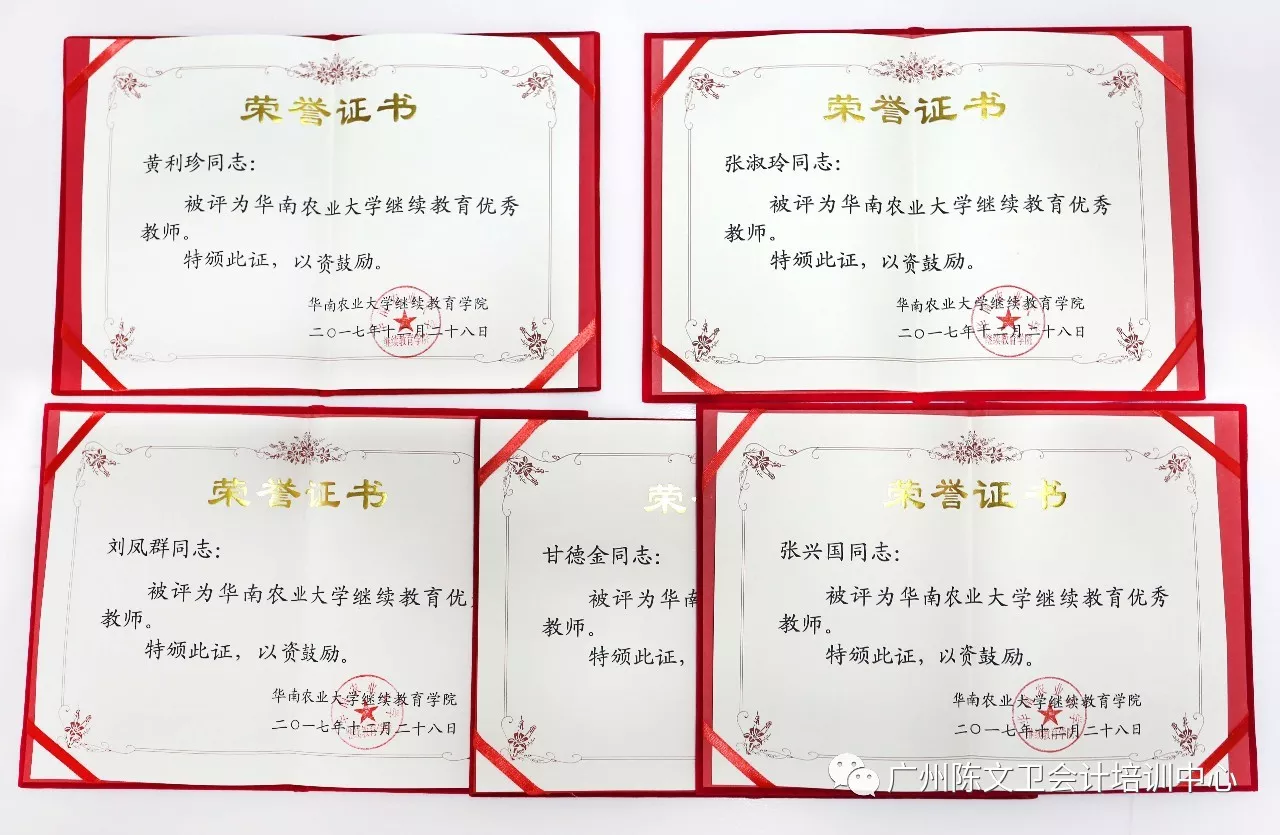 荣誉证书
黄利珍同志：
被评为华南农业大学继续教育优秀
教师。
特颁此证，以资鼓励。
华南农业大学继续教育学院
二〇一七年十二月二十八日
继续教育学院
荣誉证书
张淑玲同志：
被评为华南农业大学继续教育优秀
教师。
特颁此证，以资鼓励。
华南农业大学继续教育学院
二〇一七年十二月二十八日
继续教育学院
荣誉证书
刘凤群同志：
被评为华南农业大学继续教育优
教师。
特颁此证，以资鼓励。
华南农业大学继续教育学院
二〇一七年十二月二十八日
荣
甘德金同志：
被评为华南
教师。
特颁此证，
荣誉证书
张兴国同志：
被评为华南农业大学继续教育优秀
教师。
特颁此证，以资鼓励。
华南农业大学继续教育学院
二〇一七年十二月二十八日
广州陈文卫会计培训中心